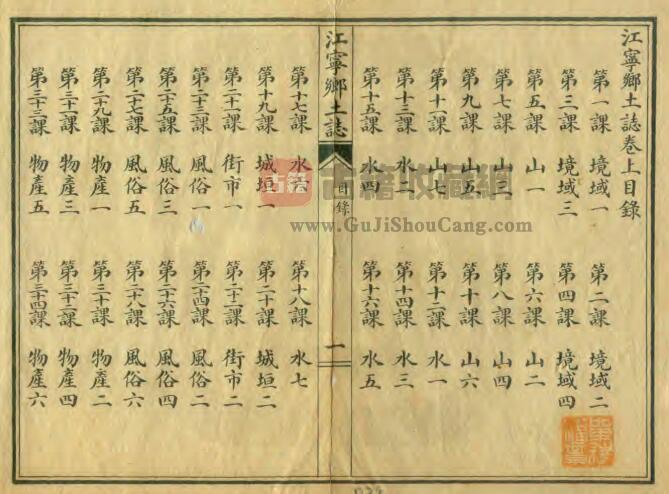 江寧鄉土誌卷上目錄
第一課 境域一 第二課 境域二
第三課 境域三 第四課 境域四
第五課 山一 第六課 山二
第七課 山三 第八課 山四
第九課 山五 第十課 山六
第十一課 山七 第十二課 水一
第十三課 水二 第十四課 水三
第十五課 水四 第十六課 水五
江寧鄉土誌 目錄 一
第十七課 水六 第十八課 水七
第十九課 城垣一 第二十課 城垣二
第二十一課 街市一 第二十二課 街市二
第二十三課 風俗一 第二十四課 風俗二
第二十五課 風俗三 第二十六課 風俗四
第二十七課 風俗五 第二十八課 風俗六
第二十九課 物產一 第三十課 物產二
第三十一課 物產三 第三十二課 物產四
第三十三課 物產五 第三十四課 物產六
古籍 古籍收藏網
www.GuJiShouCang.com